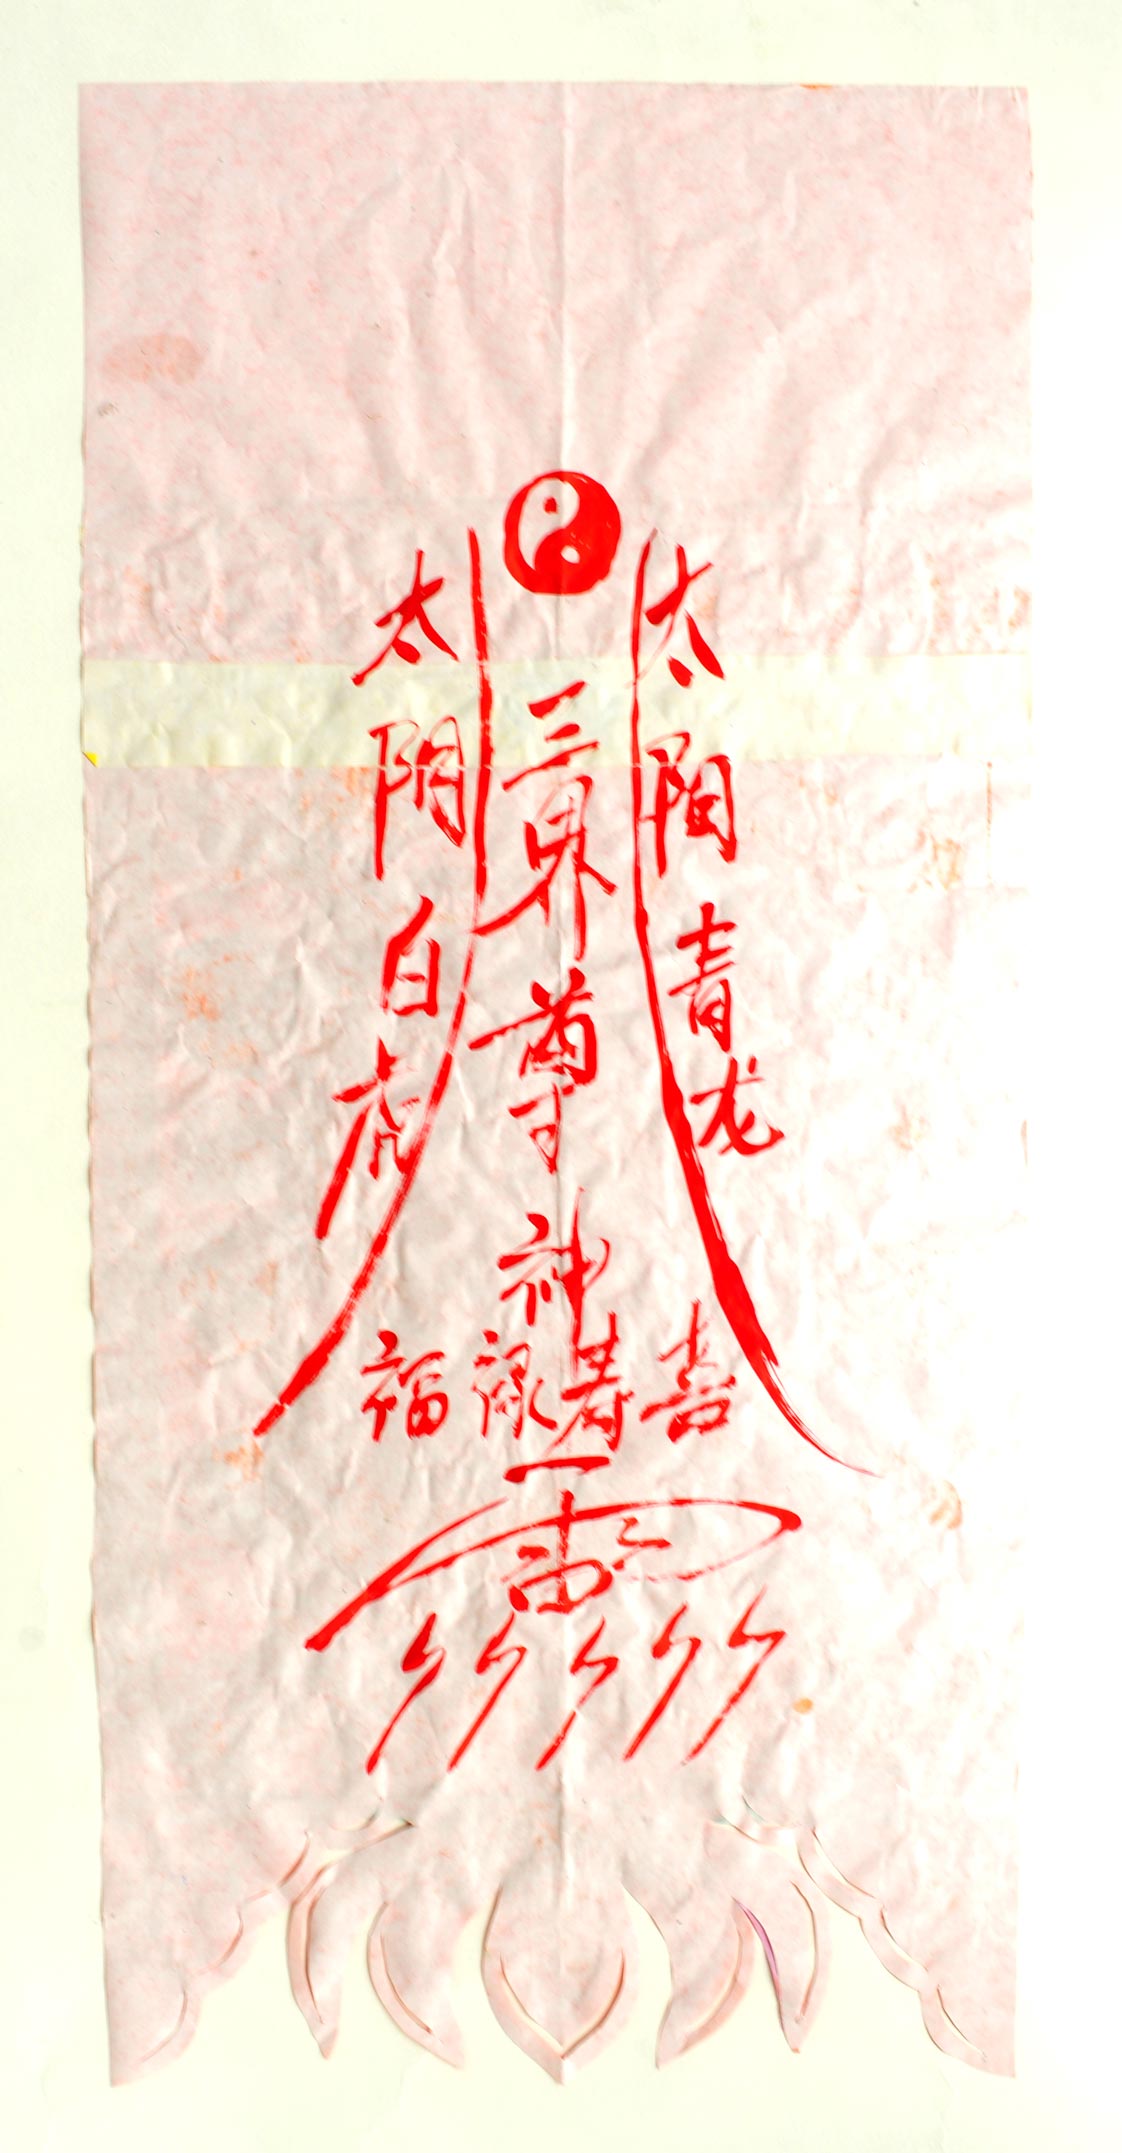 太阳青龙
三界尊神
太阴白虎
福禄寿喜